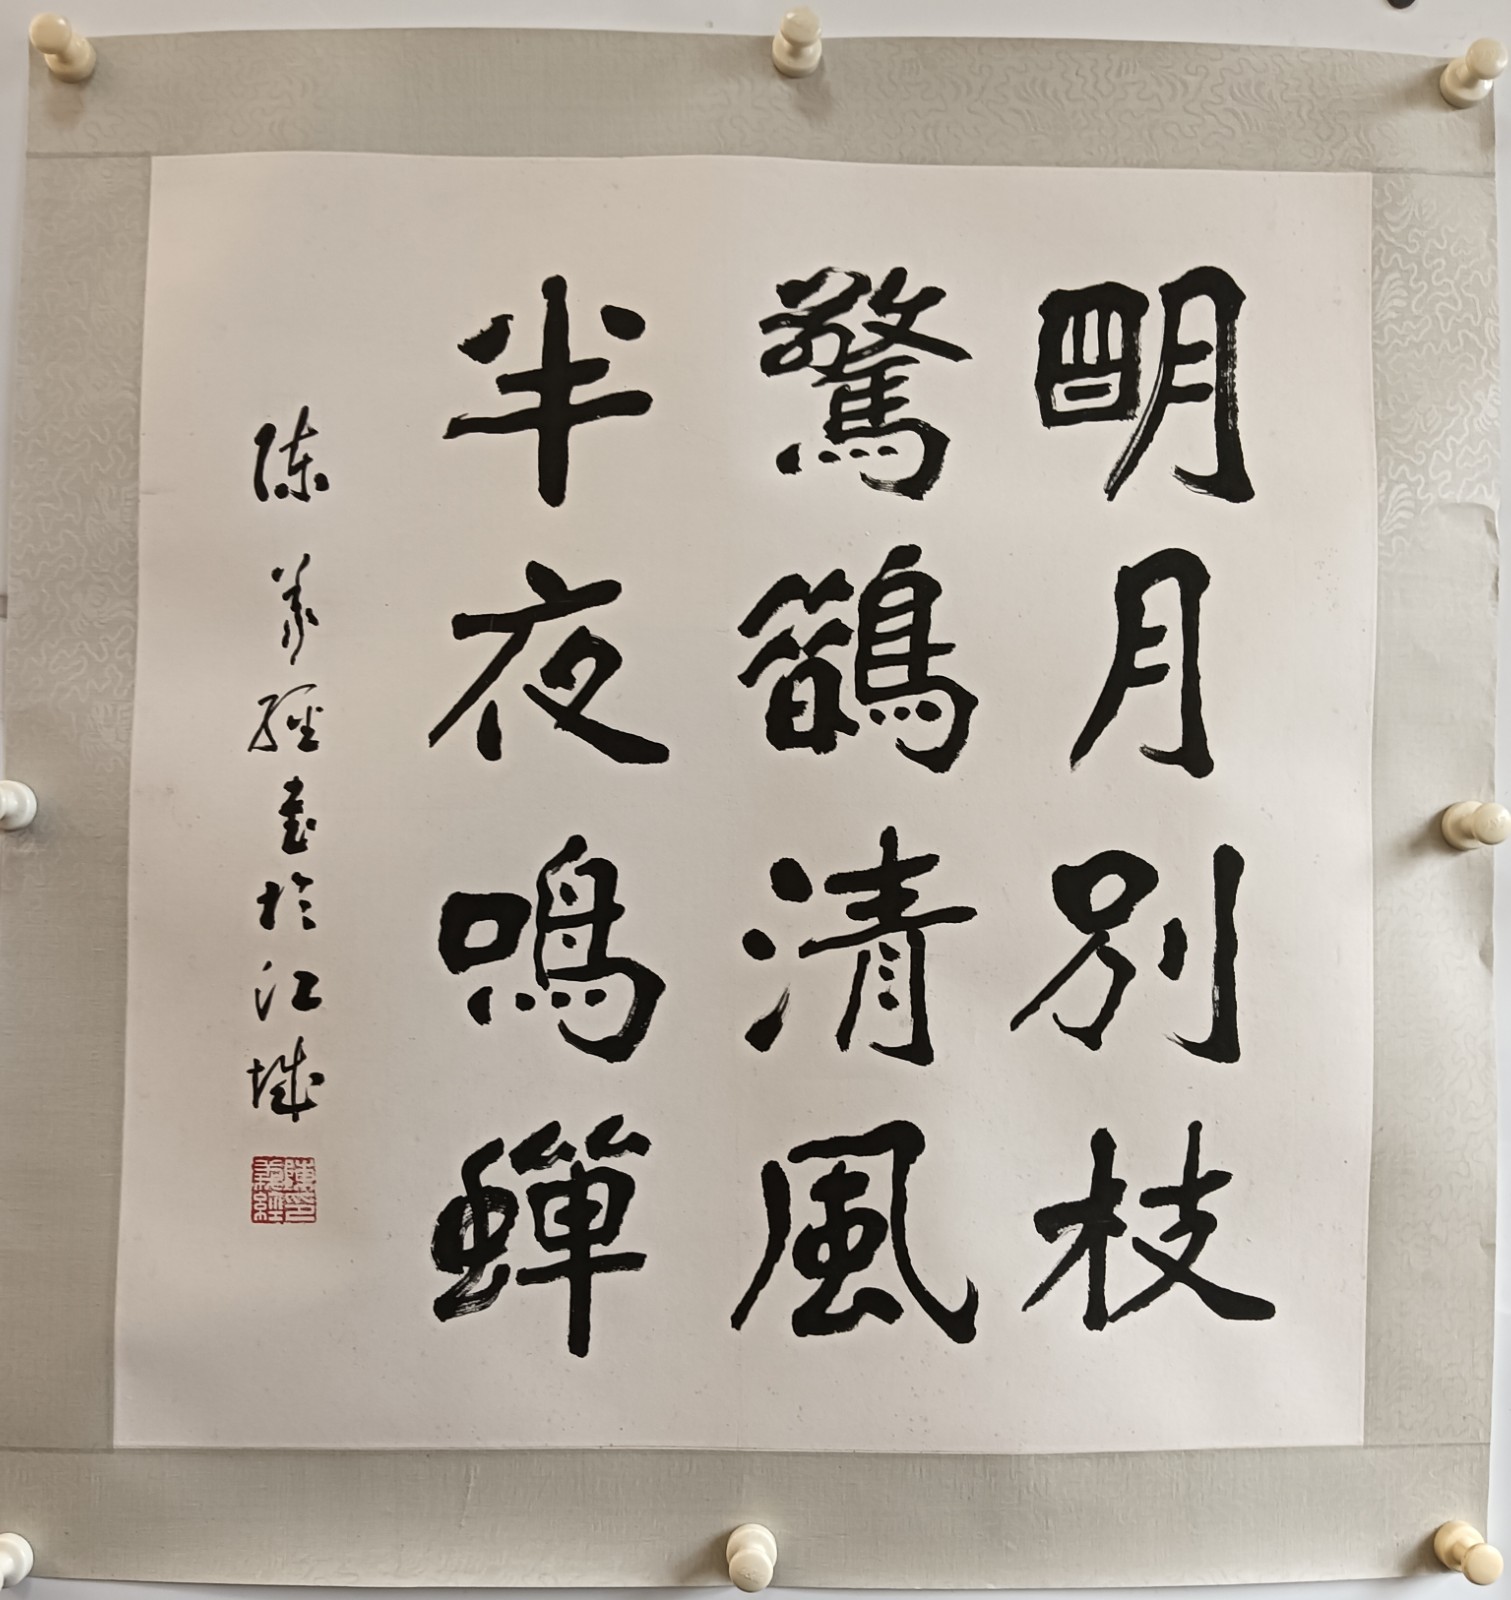 明月別枝
驚鵲清風
半夜鳴蟬
陳義經書於江城
陳印義經